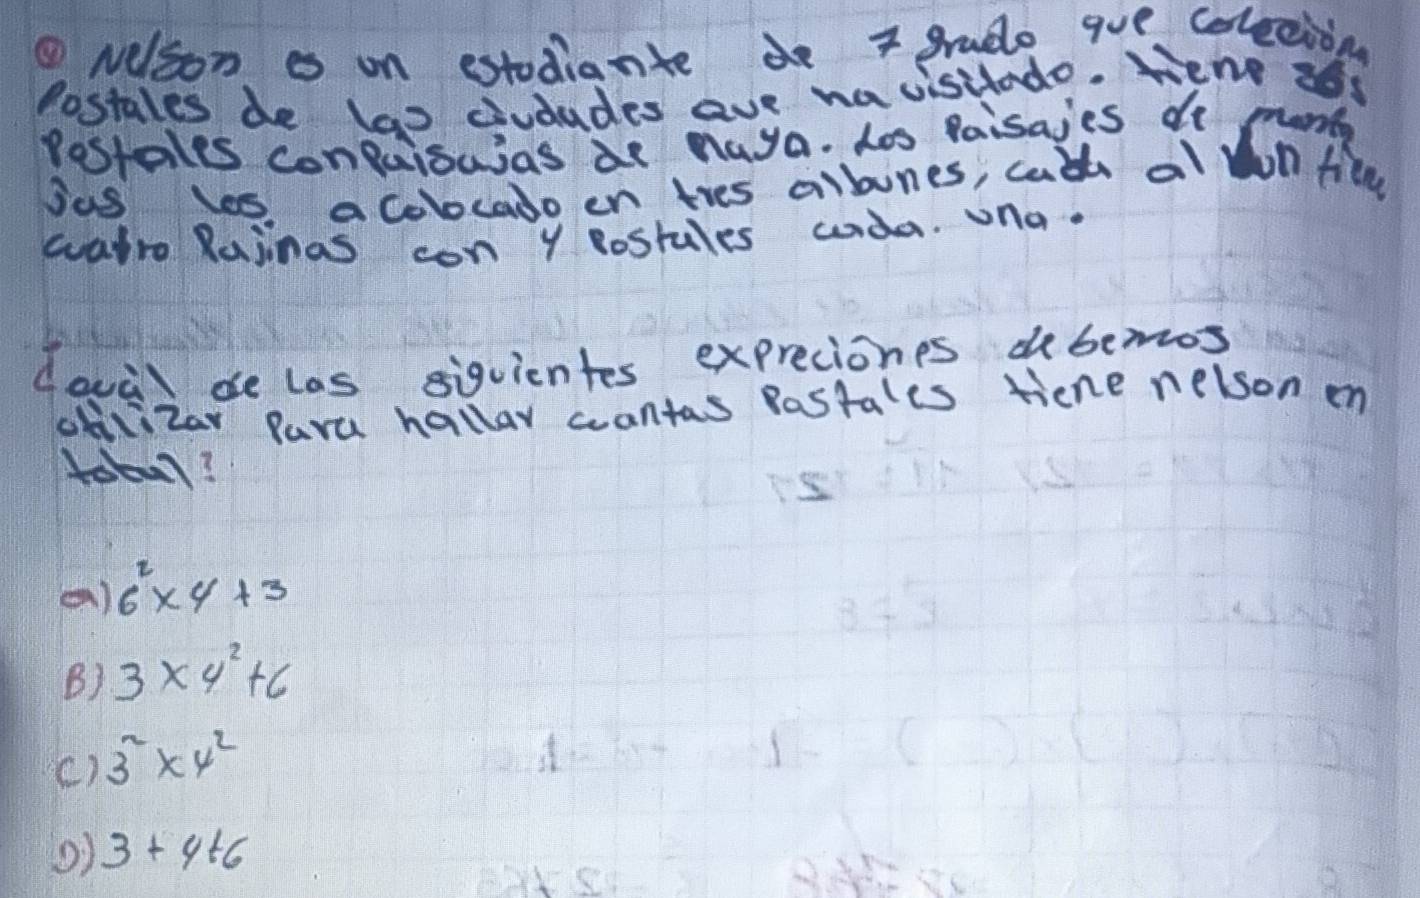 Nelson es un estudiante de 7 grado que coleccióna
Postales de las ciudades que ha visitado. tiene
Postales con paisajas de playa. Los Paisajes de
jas los a colocado en tres albunes, cada al bun tiene
cuatro Pajinas con 4 Postales cada. una.
¿cuál de las siguientes expreciónes debemos
utilizar Para hallar cuantas Pastales tiene nelson en
total?
a) 6² x 4 + 3
B) 3 x 4² + 6
C) 3² x 4²
D) 3 + 4 + 6